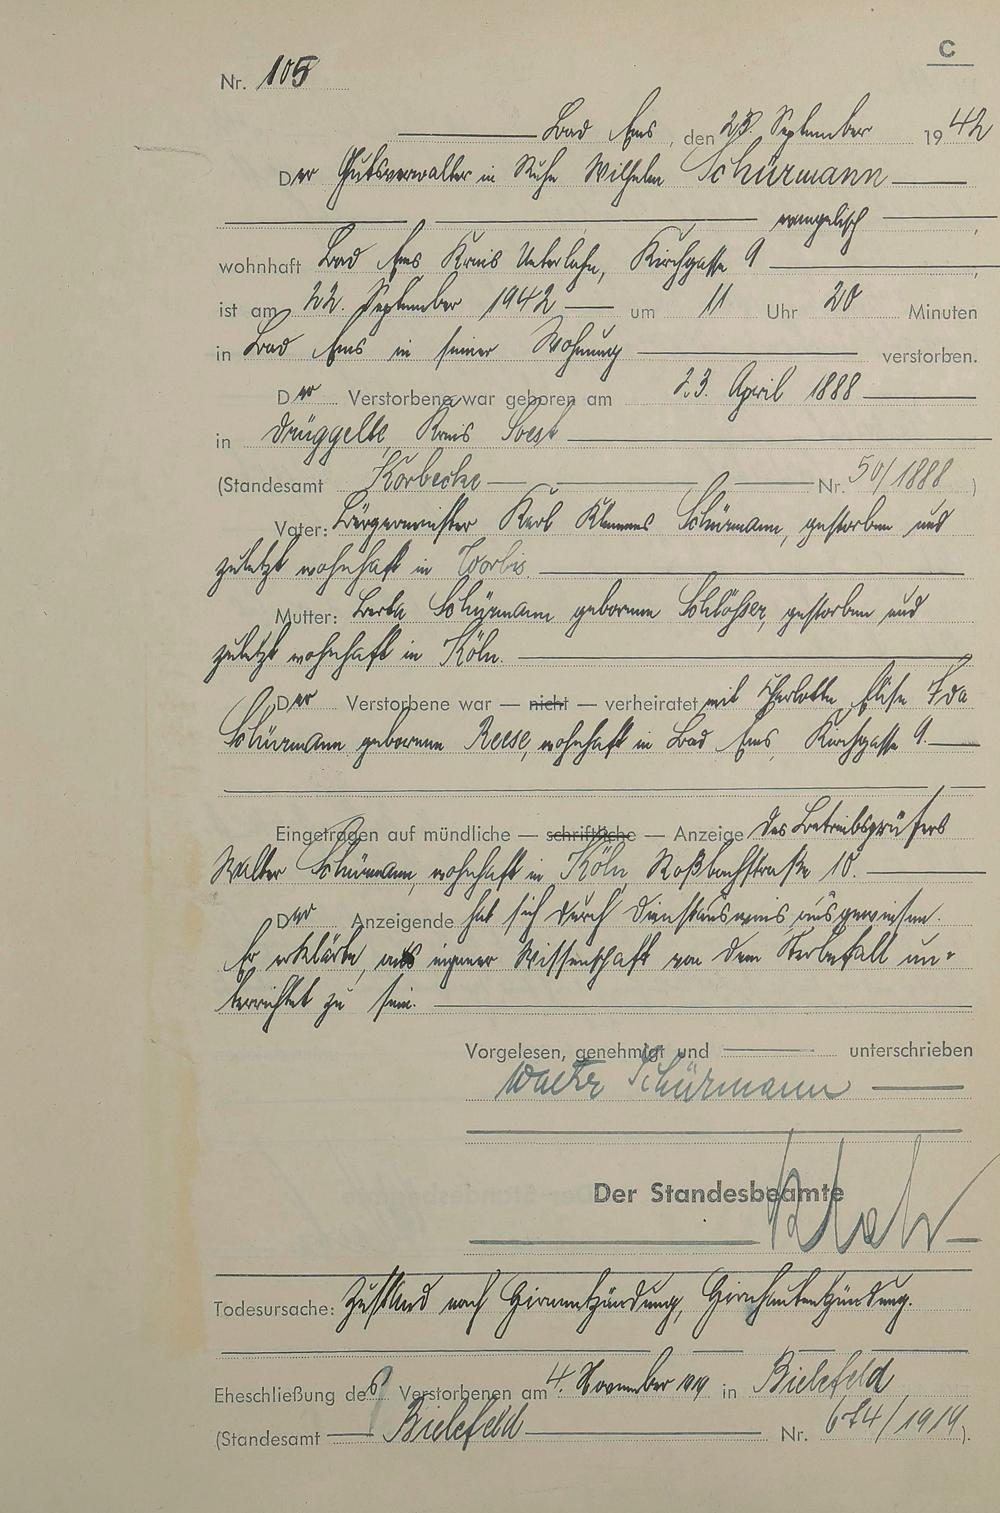 C
Nr. 105
Bad Ems, den 23. September 1942
Der Gutsverwalter in Ruhe Wilhelm Schürmann
evangelisch
wohnhaft Bad Ems Kreis Unterlahn, Kirchgasse 9
ist am 22. September 1942 um 11 Uhr 20 Minuten
in Bad Ems in seiner Wohnung verstorben.
Der Verstorbene war geboren am 23. April 1888
in Drüggelte, Kreis Soest
(Standesamt Körbecke Nr. 50/1888)
Vater: Bürgermeister Karl Klemens Schürmann, gestorben und
zuletzt wohnhaft in Worbis.
Mutter: Berta Schürmann geborene Schlösser, gestorben und
zuletzt wohnhaft in Köln.
Der Verstorbene war — nicht — verheiratet mit Charlotte Elise Ida
Schürmann geborenen Reese, wohnhaft in Bad Ems, Kirchgasse 9.
Eingetragen auf mündliche — schriftliche — Anzeige des Betriebsprüfers
Walter Schürmann, wohnhaft in Köln, Roßbachstraße 10.
Der Anzeigende hat sich durch Dienstausweis ausgewiesen.
Er erklärte, aus eigener Wissenschaft von dem Sterbefall un-
terrichtet zu sein.
Vorgelesen, genehmigt und unterschrieben
Walter Schürmann
Der Standesbeamte
Todesursache: Zustand nach Hirnentzündung, Hirnhautentzündung.
Eheschließung des Verstorbenen am 4. November 1919 in Bielefeld
(Standesamt Bielefeld Nr. 674/1919).